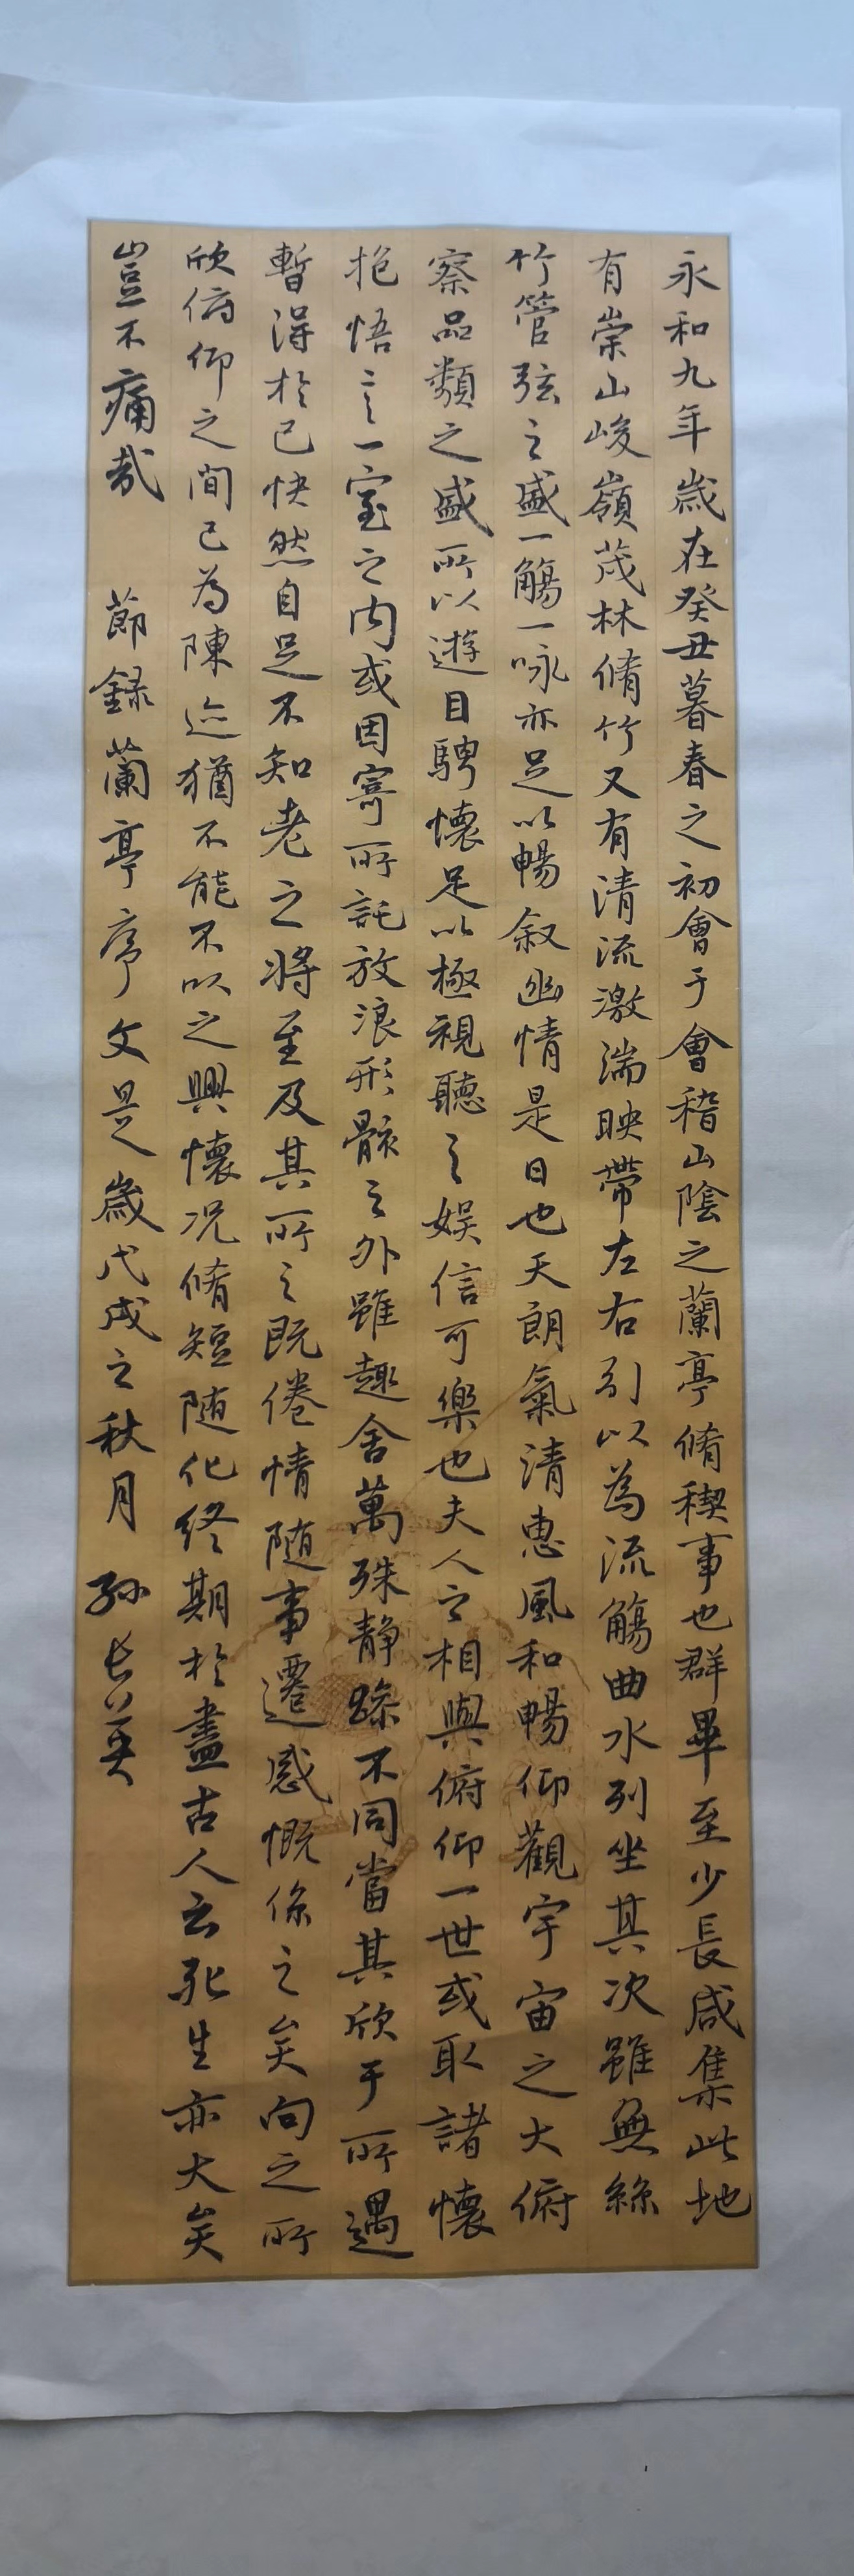 永和九年歲在癸丑暮春之初會于會稽山陰之蘭亭脩稧事也群畢至少長咸集此地
有崇山峻嶺茂林脩竹又有清流激湍映帶左右引以為流觴曲水列坐其次雖無絲
竹管弦之盛一觴一咏亦足以暢叙幽情是日也天朗氣清惠風和暢仰觀宇宙之大俯
察品類之盛所以遊目騁懷足以極視聽之娛信可樂也夫人之相與俯仰一世或取諸懷
抱悟言一室之内或因寄所託放浪形骸之外雖趣舍萬殊静躁不同當其欣于所遇
暫得於己快然自足不知老之將至及其所之既倦情随事遷感慨係之矣向之所
欣俯仰之間已為陳迹猶不能不以之興懷况脩短随化終期於盡古人云死生亦大矣
豈不痛哉 節録蘭亭序文是歲戊戌之秋月 孙长英